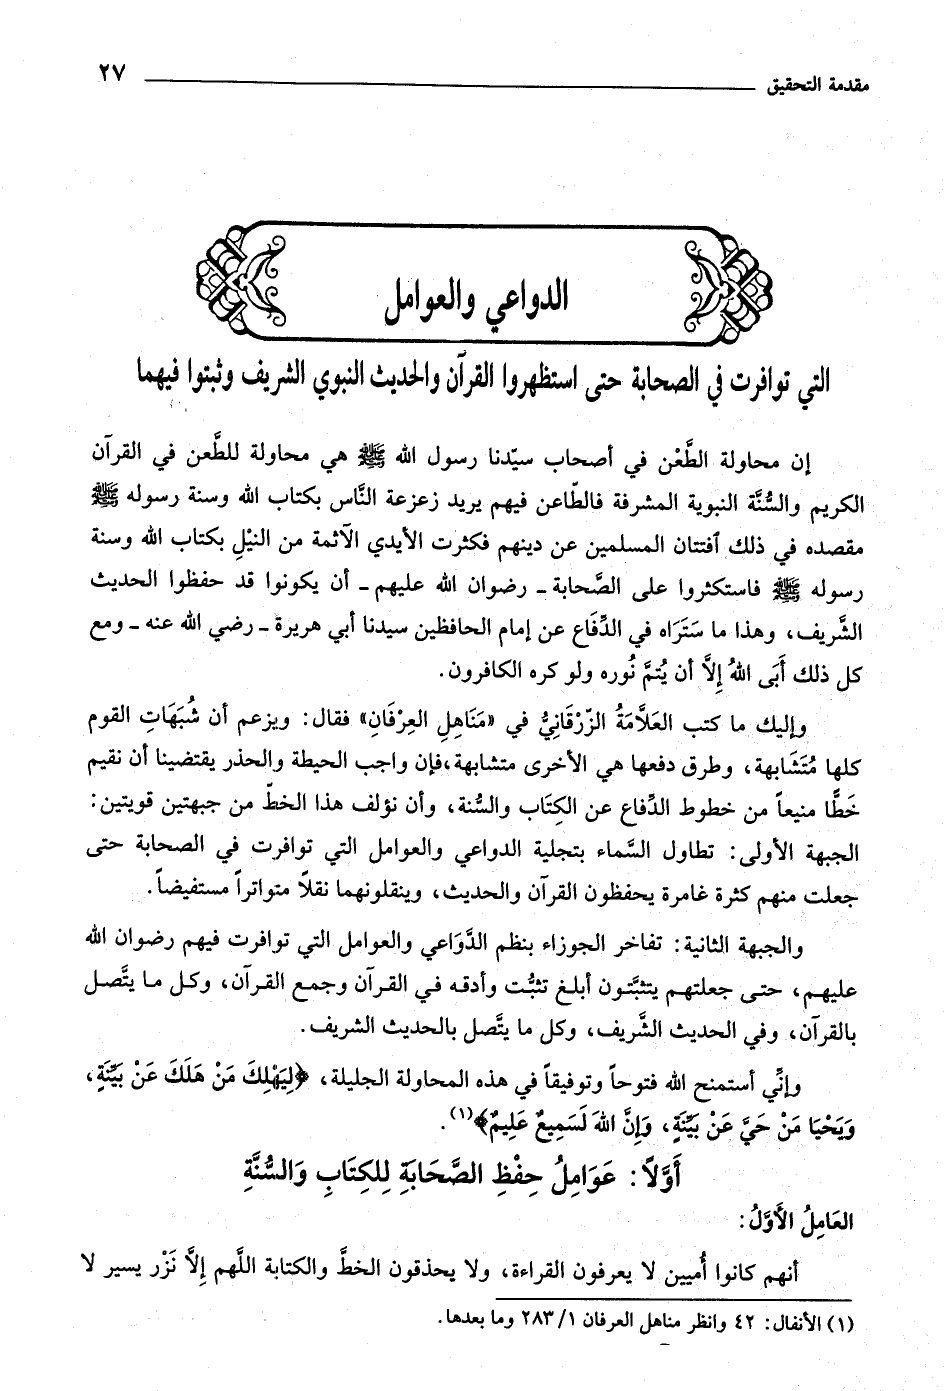 مقدمة التحقيق ٢٧
الدواعي والعوامل
التي توافرت في الصحابة حتى استظهروا القرآن والحديث النبوي الشريف وثبتوا فيهما
إن محاولة الطَّعْن في أصحاب سيّدنا رسول الله ﷺ هي محاولة للطَّعن في القرآن
الكريم والسُّنَّة النبوية المشرفة فالطّاعن فيهم يريد زعزعة النَّاس بكتاب الله وسنة رسوله ﷺ
مقصده في ذلك ٱفتتان المسلمين عن دينهم فكثرت الأيدي الآثمة من النيْلِ بكتاب الله وسنة
رسوله ﷺ فاستكثروا على الصَّحابة ـ رضوان الله عليهم ـ أن يكونوا قد حفظوا الحديث
الشَّريف، وهذا ما سَتَرَاه في الدِّفَاع عن إمام الحافظين سيدنا أبي هريرة ـ رضي الله عنه ـ ومع
كل ذلك أَبَى اللهُ إلاَّ أن يُتمَّ نُوره ولو كره الكافرون.
وإليك ما كتب العَلاَّمَةُ الزّرْقَانِيُّ في «مَنَاهِلِ العِرْفَانِ» فقال: ويزعم أن شُبَهَاتِ القوم
كلها مُتَشَابهة، وطرق دفعها هي الأخرى متشابهة،فإن واجب الحيطة والحذر يقتضينا أن نقيم
خَطًّا منيعاً من خطوط الدِّفاع عن الكِتَاب والسُّنة، وأن نؤلف هذا الخطّ من جبهتين قويتين:
الجبهة الأولى: تطاول السَّماء بتجلية الدواعي والعوامل التي توافرت في الصحابة حتى
جعلت منهم كثرة غامرة يحفظون القرآن والحديث، وينقلونهما نقلاً متواتراً مستفيضاً.
والجبهة الثانية: تفاخر الجوزاء بنظم الدَّوَاعي والعوامل التي توافرت فيهم رضوان الله
عليهم، حتى جعلتهم يتثبَّتون أبلغ تثبُّت وأدقه في القرآن وجمع القرآن، وكل ما يتَّصل
بالقرآن، وفي الحديث الشَّريف، وكل ما يتَّصل بالحديث الشريف.
وإنِّي أستمنح الله فتوحاً وتوفيقاً في هذه المحاولة الجليلة، ﴿لِيَهْلِكَ مَنْ هَلَكَ عَنْ بَيِّنَةٍ،
وَيَحْيَا مَنْ حَيَّ عَنْ بَيِّنَةٍ، وَإِنَّ اللهَ لَسَمِيعٌ عَلِيمٌ﴾(١).
أَوَّلاً: عَوَامِلُ حِفْظِ الصَّحَابَةِ لِلكِتَابِ وَالسُّنَّةِ
العَامِلُ الأَوَّلُ:
أنهم كانوا أُميين لا يعرفون القراءة، ولا يحذقون الخطَّ والكتابة اللَّهم إلاَّ نَزْر يسير لا
(١) الأنفال: ٤٢ وانظر مناهل العرفان ٢٨٣/١ وما بعدها.